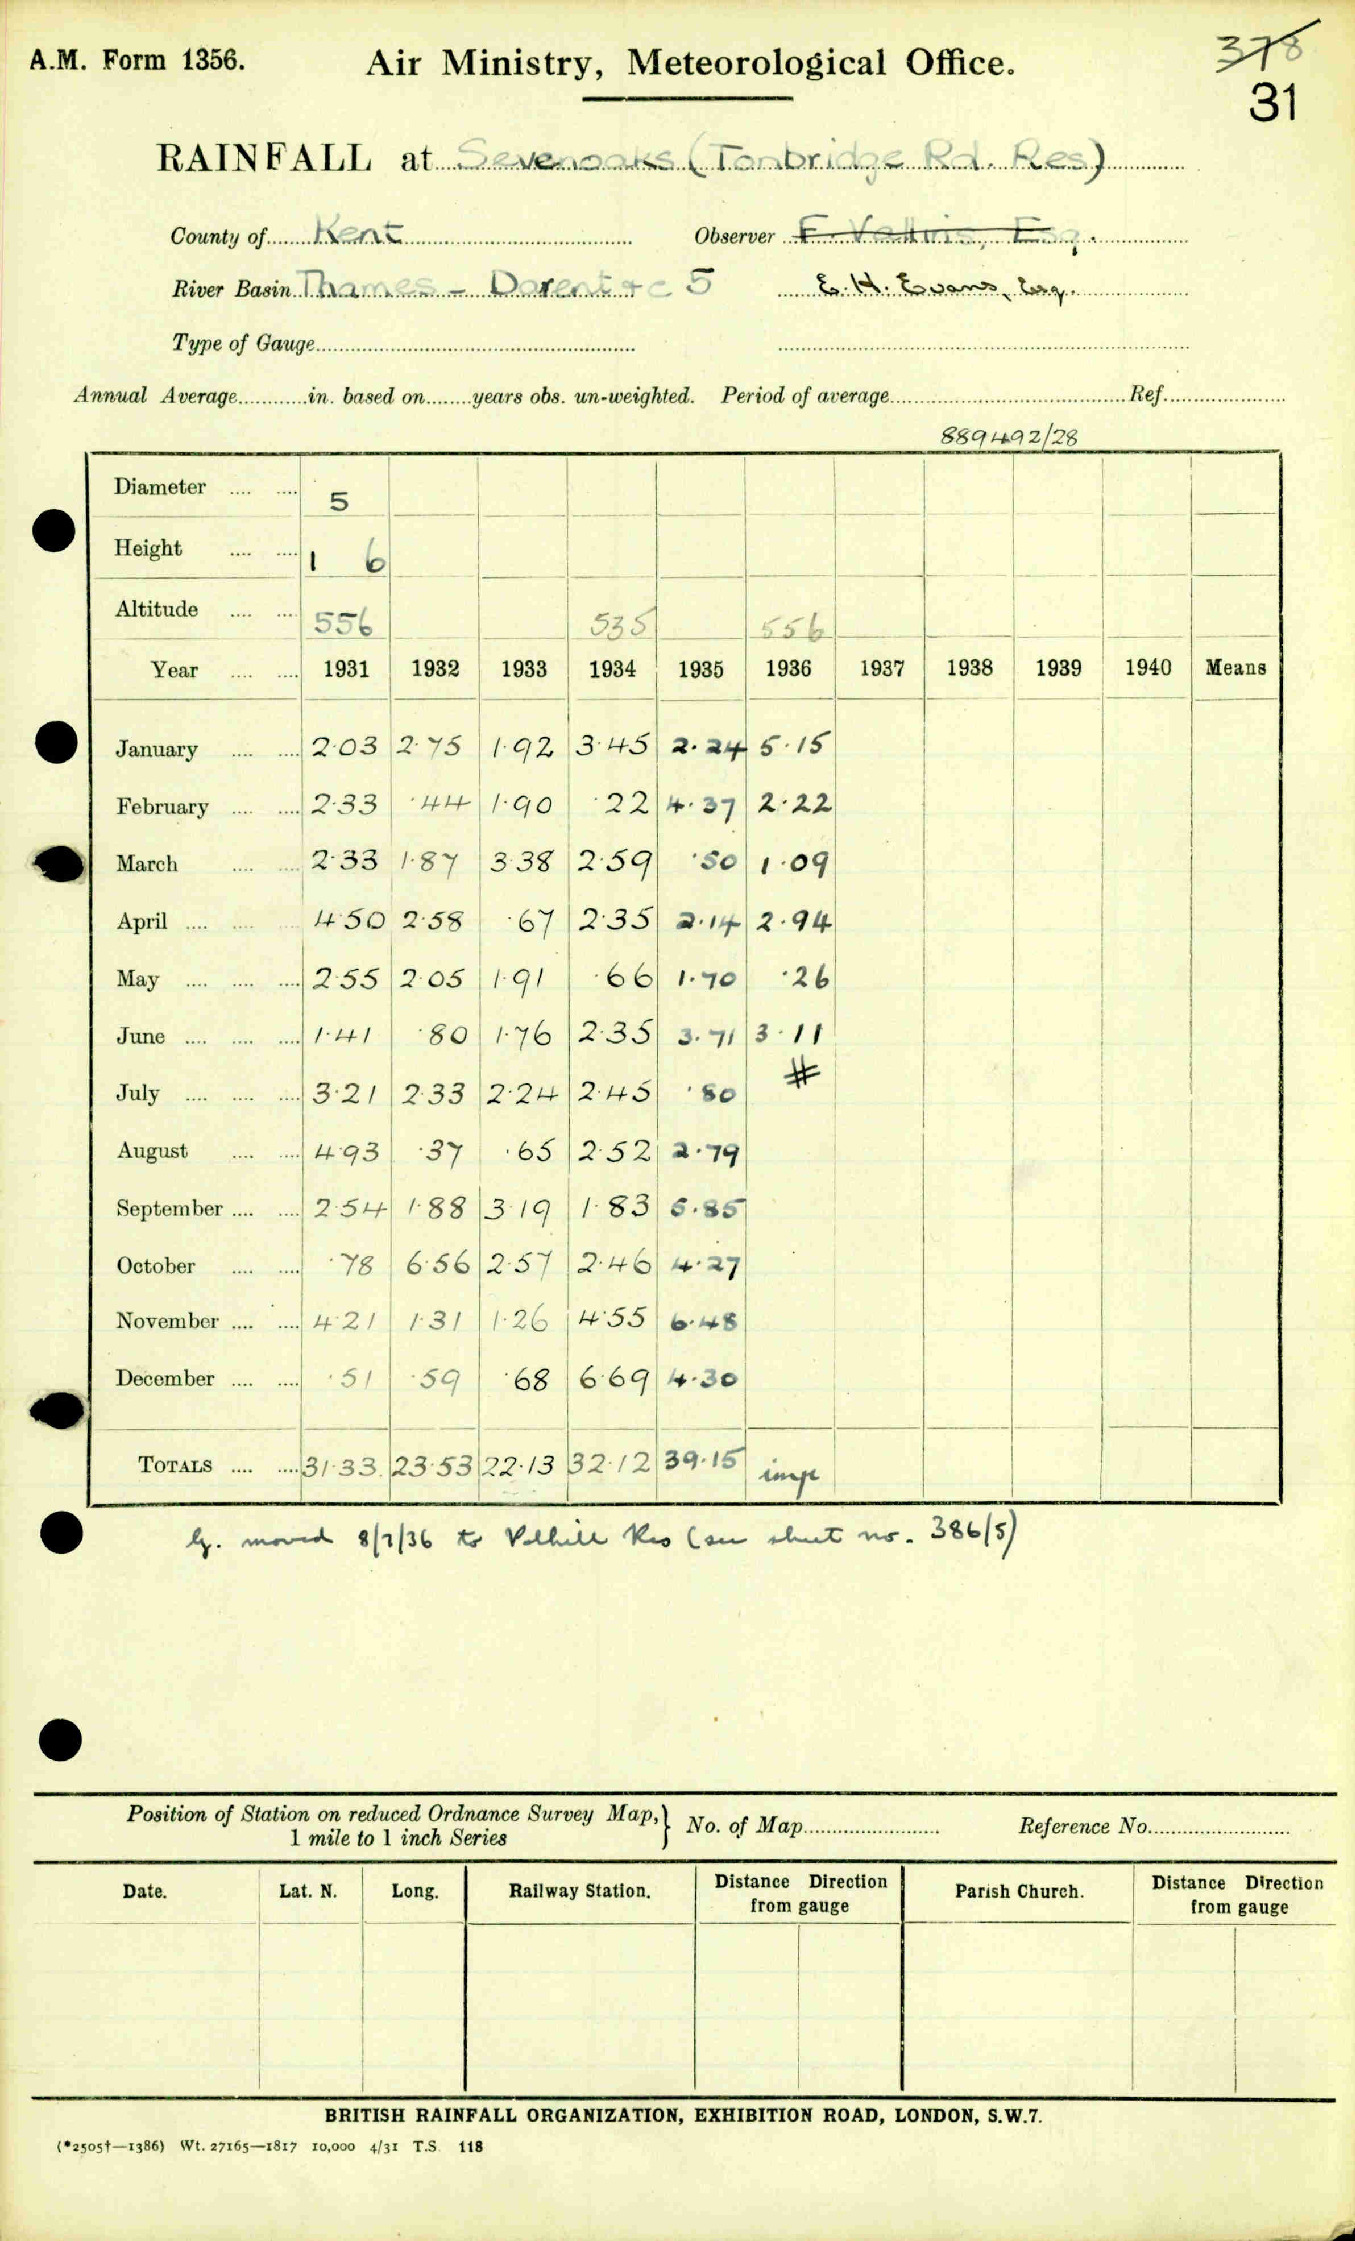 A.M. Form 1356. Air Ministry, Meteorological Office. 378
31
RAINFALL at Sevenoaks (Tonbridge Rd. Res)
County of Kent Observer F. Vallins, Esq.
River Basin Thames - Darent &c 5 E. H. Evans, Esq.
Type of Gauge
Annual Average in. based on years obs. un-weighted. Period of average Ref.
889492/28
Diameter 5
Height 1 6
Altitude 556 535 556
Year 1931 1932 1933 1934 1935 1936 1937 1938 1939 1940 Means
January 2·03 2·75 1·92 3·45 2·24 5·15
February 2·33 ·44 1·90 ·22 4·37 2·22
March 2·33 1·87 3·38 2·59 ·50 1·09
April 4·50 2·58 ·67 2·35 2·14 2·94
May 2·55 2·05 1·91 ·66 1·70 ·26
June 1·41 ·80 1·76 2·35 3·71 3·11
#
July 3·21 2·33 2·24 2·45 ·80
August 4·93 ·37 ·65 2·52 2·79
September 2·54 1·88 3·19 1·83 5·85
October ·78 6·56 2·57 2·46 4·27
November 4·21 1·31 1·26 4·55 6·48
December ·51 ·59 ·68 6·69 4·30
TOTALS 31·33 23·53 22·13 32·12 39·15 imp
G. moved 8/7/36 to Polhill Res (see sheet no. 386/5)
Position of Station on reduced Ordnance Survey Map, } No. of Map Reference No.
1 mile to 1 inch Series
Date. Lat. N. Long. Railway Station. Distance Direction from gauge Parish Church. Distance Direction from gauge
BRITISH RAINFALL ORGANIZATION, EXHIBITION ROAD, LONDON, S.W.7.
(*2505†—1386) Wt. 27165—1817 10,000 4/31 T.S. 118